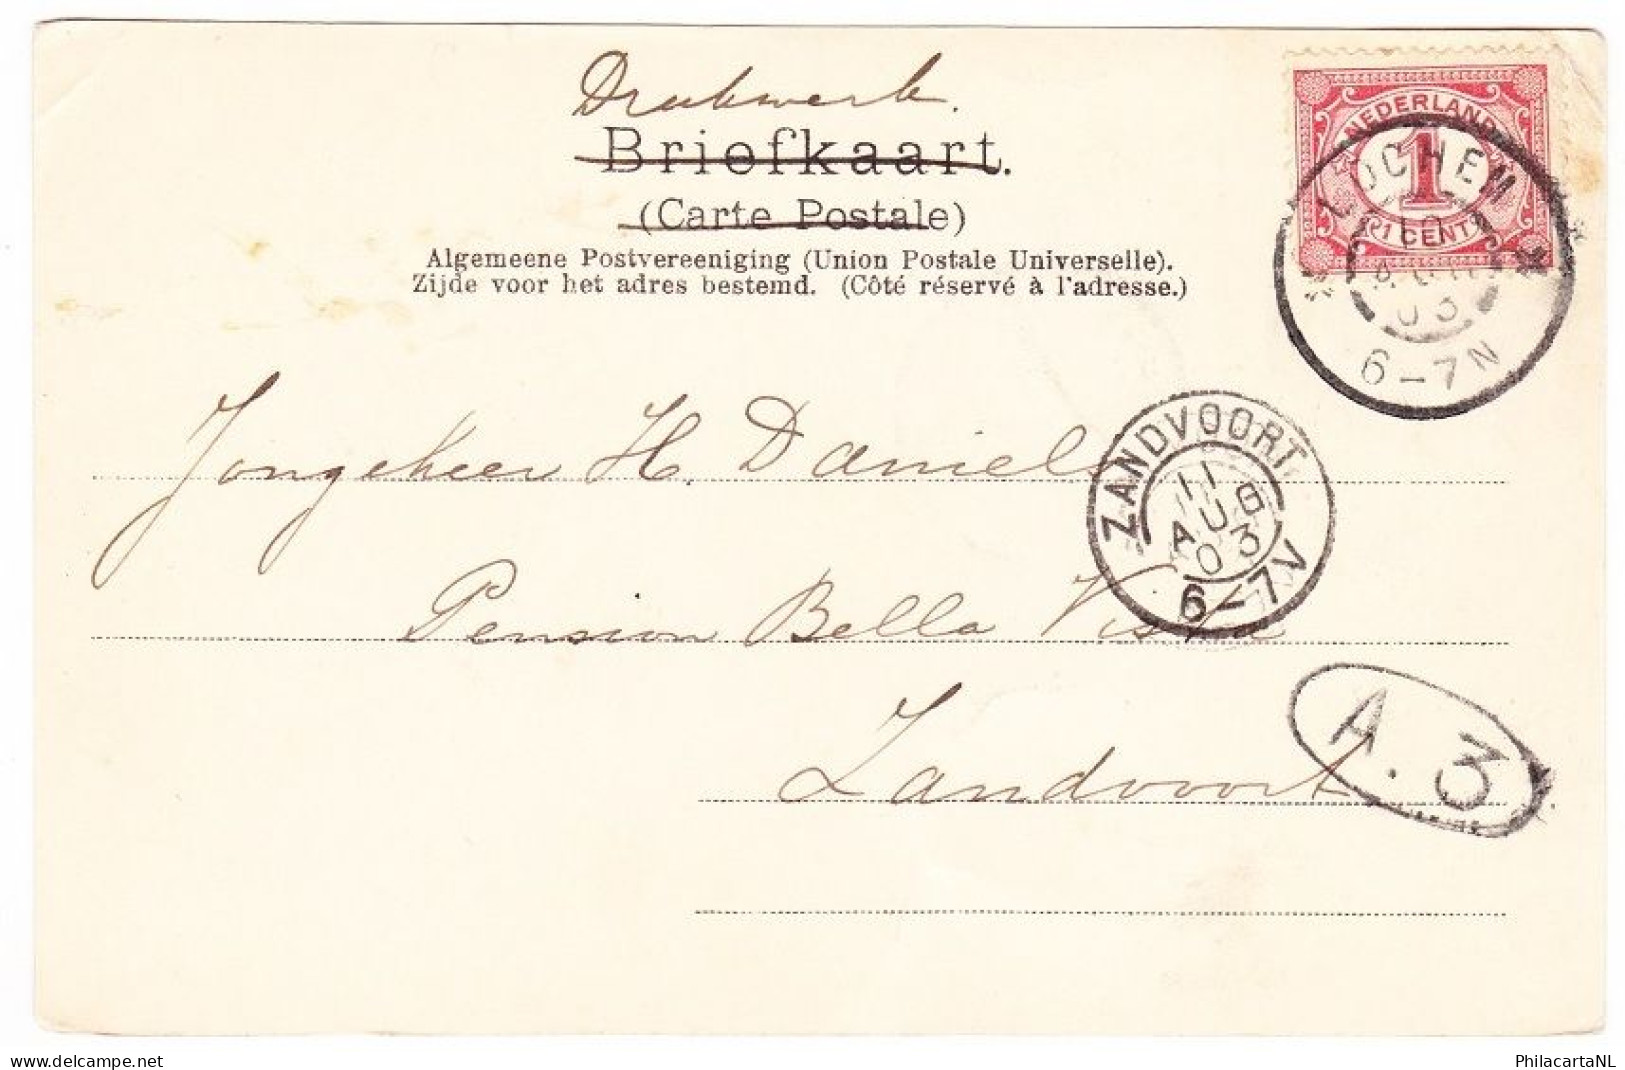 Drukwerk.
Briefkaart.
(Carte Postale)
Algemeene Postvereeniging (Union Postale Universelle).
Zijde voor het adres bestemd. (Côté réservé à l'adresse.)
NEDERLAND
1
1 CENT
LOCHEM
10
03
6-7N
ZANDVOORT
11
AUG
03
6-7V
Jongeheer H. Daniels
Pension Bella Vista
Zandvoort
A. 3
delcampe.net
PhilacartaNL